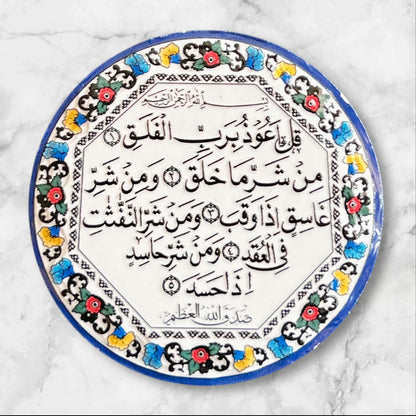 بسم الله الرحمن الرحيم
قُلْ أَعُوذُ بِرَبِّ الْفَلَقِ ١
مِنْ شَرِّ مَا خَلَقَ ٢ وَمِنْ شَرِّ
غَاسِقٍ إِذَا وَقَبَ ٣ وَمِنْ شَرِّ النَّفّٰثٰتِ
فِي الْعُقَدِ ٤ وَمِنْ شَرِّ حَاسِدٍ
إِذَا حَسَدَ ٥
صدق الله العظيم